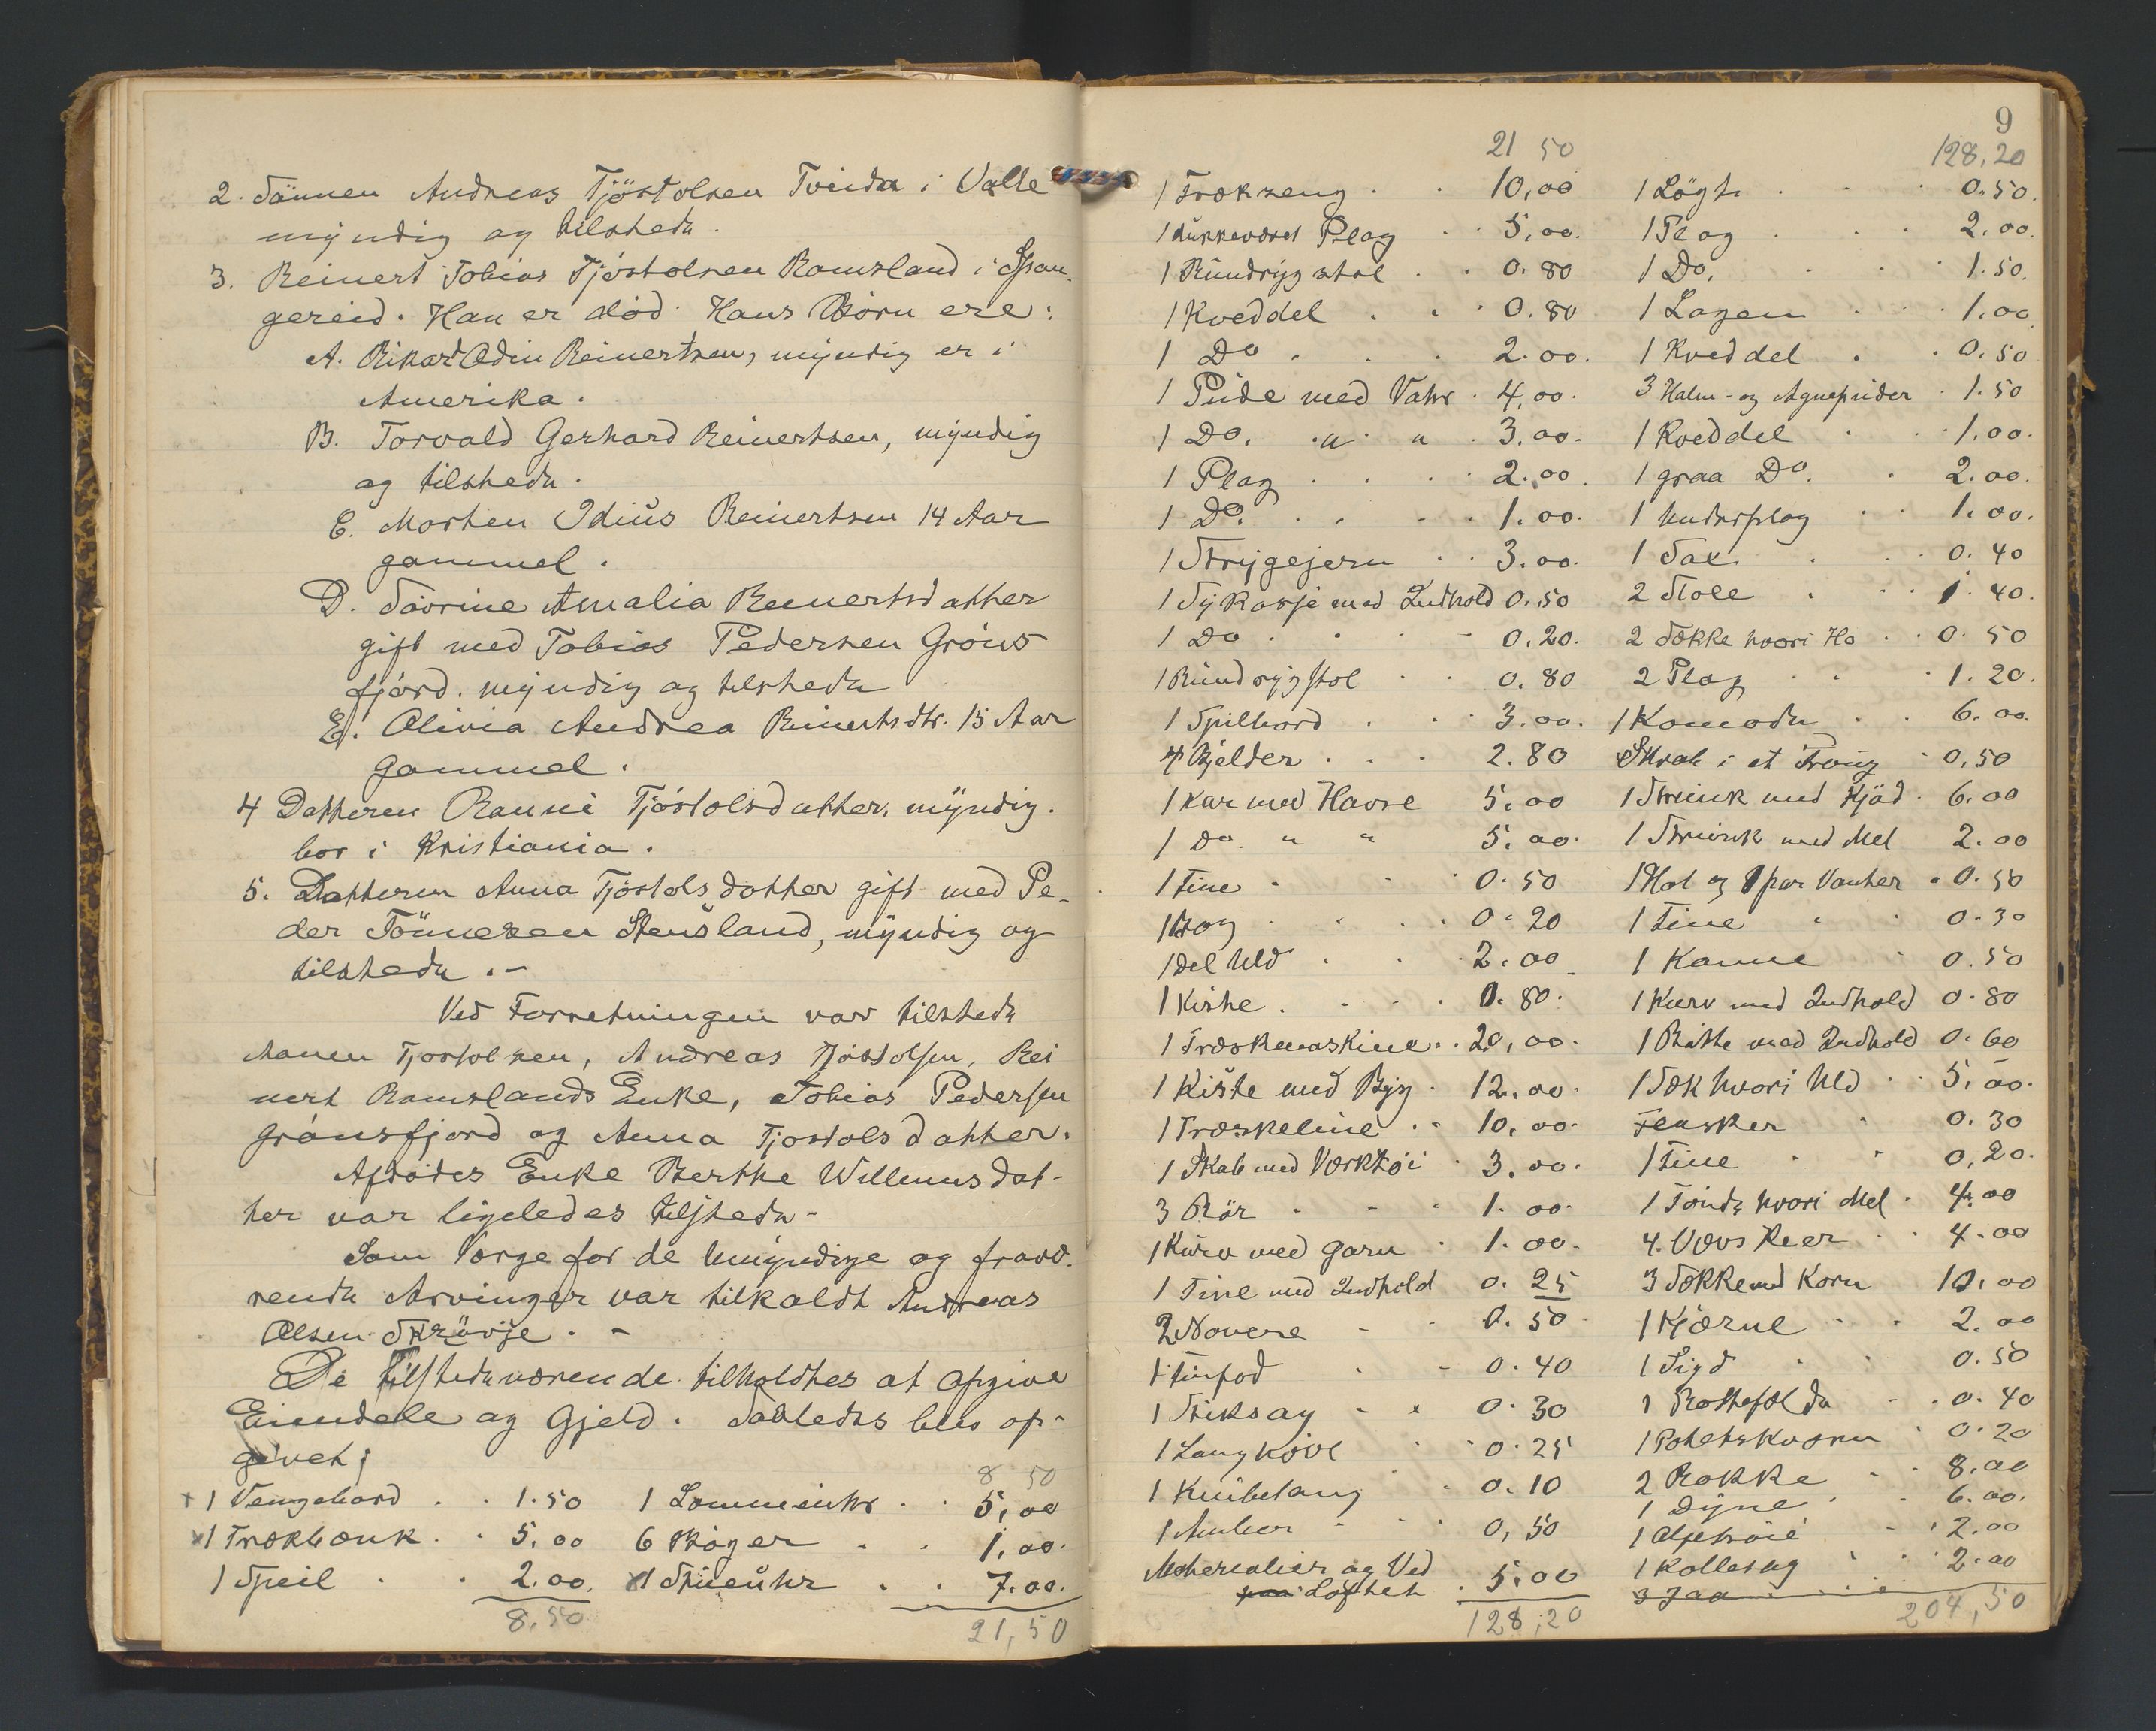 2. Sønnen Andreas Tjöstolsen Tveida i Valle
myndig og tilstede.
3. Reinert Tobias Tjöstolsen Ramsland i Span-
gereid. Han er död. Hans Börn ere:
A. Rikard Odin Reinertsen, myndig er i
Amerika.
B. Torvald Gerhard Reinertsen, myndig
og tilstede.
C. Morten Idius Reinertsen 14 Aar
gammel.
D. Sörine Amalia Reinertsdatter
gift med Tobias Pedersen Gröns
fjörd. myndig og tilstede
E. Olivia Andrea Reinertsdtr. 15 Aar
gammel.
4 Datteren Ranni Tjöstolsdatter, myndig.
bor i Kristiania.
5. Datteren Anna Tjöstolsdatter gift med Pe-
der Tönnesen Stensland, myndig og
tilstede.-
Ved Forretningen var tilstede
Aanen Tjostolsen, Andreas Tjöstolsen, Rei
nert Ramslands Enke, Tobias Pedersen
Grönsfjord og Anna Tjostolsdatter.
Afdödes Enke Berthe Willumsdat-
ter var ligeledes tilstede-
Som Værge for de Umyndige og fravæ-
rende Arvinger var tilkaldt Andreas
Olsen Skrövje. -
De tilstedeværende tilholdtes at opgive
Eiendele og Gjeld. Saaledes blev op-
givet;
8 50
1 Vengebord . . 1.50 1 Lommeuhr . . 5,00
1 Trækbænk . . 5.00 6 Böger . . 1,00.
1 Speil . . 2.00. 1 Stueuhr . . 7.00.
8,50 21,50
9
21 50
1 Trækseng . . 10,00
1 dukkevævet Plag . . 5,00.
1 Rundrygstol . . 0.80
1 Kveddel . . . 0.80
1 Do . . . 2.00.
1 Pude med Vahr . 4,00.
1 Do. " " . 3.00.
1 Plag . . . . 2.00.
1 Do. . . . . 1.00.
1 Strygejern . . 3.00.
1 Sykasse med Indhold 0.50
1 Do . . . - 0.20.
1 Rundrygstol . . 0.80
1 Spilbord . . . 3.00.
4 Bjelder . . . 2.80
1 Kar med Havre 5.00
1 Do. " " 5.00.
1 Tine . . . 0.50
1 Bog . . . . 0.20
1 Del Uld . . . 2.00
1 Kiste . . . . 0.80.
1 Træskemaskine . . 20,00.
1 Kiste med Byg . 12.00.
1 Træskeline . . 10,00.
1 Skab med Værktöi . 3.00.
3 Rör . - - . 1.00.
1 Kurv med Garn . 1.00.
1 Tine med Indhold 0.25
2 Navere - - 0.50
1 Turfod . - 0.40
1 Stiksag - . 0.30
1 Langhövl . . 0.25
1 Knibetang . 0.10
1 Amber - - . 0,50
Materialier og Ved
paa Loftet . 5.00
128,20
128,20
1 Lögt . . . 0.50.
1 Plag . . . 2.00.
1 Do. . . . 1.50.
1 Lagen . . . 1.00
1 Kveddel . . 0.50
3 Halm- og Agnepuder . 1.50
1 Kveddel . . . 1.00.
1 graa Do. . 2.00.
1 Underplag . . 1.00.
1 Sax . . . 0.40
2 Stole . . . 1.40.
2 Sække hvori Hø . . 0.50
2 Plag . . . 1.20.
1 Komode . . 6.00.
Skrab i et Traug . 0,50
1 Strunk med Kjöd . 6.00
1 Strunk med Mel 2.00
1 Hat og 1 par Vanter . 0.50
1 Tine . . 0.30
1 Kanne . 0.50
1 Kurv med Indhold 0.80
1 Bötte med Indhold 0.60
1 Sæk hvori Uld . . 5.00.
Flasker . 0.30
1 Tine . . 0,20.
1 Tönde hvori Mel . 4.00
4. Vævskeer . . 4.00
3 Sække med Korn 10.00
1 Kjærne . . 2.00
1 Sigd . . 0.50
1 Rottefælde - . 0.40
1 Potetskværn . 0.20
2 Rokke . . 8.00
1 Dyne . . 6.00.
1 . 2.00
1 . 2.00
3 Jaa
204,50